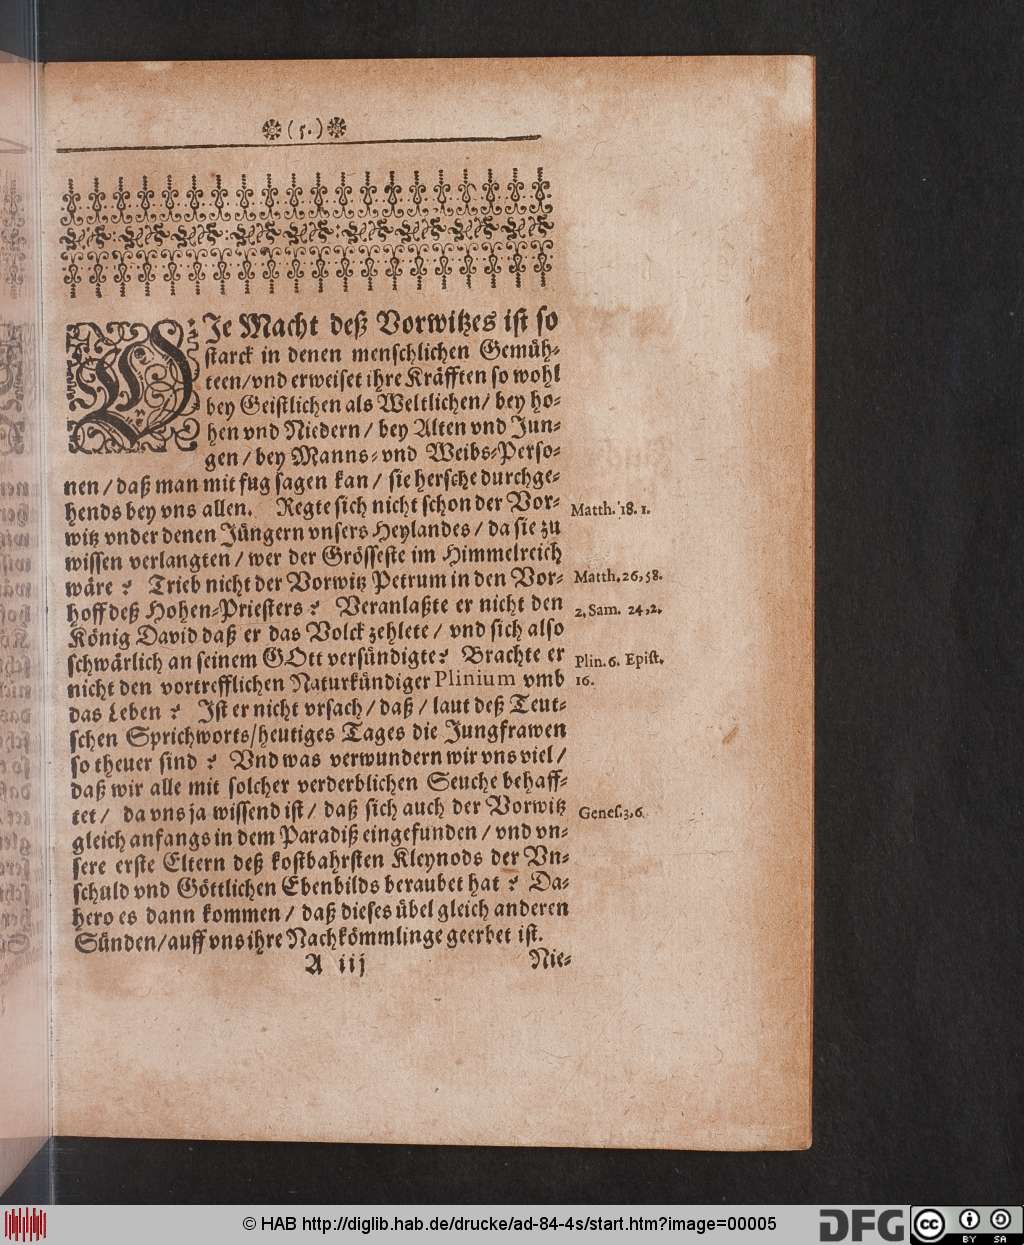 (5.)
DIe Macht deß Vorwitzes ist so
starck in denen menschlichen Gemüh-
teen/vnd erweiset ihre Kräfften so wohl
bey Geistlichen als Weltlichen/ bey ho-
hen vnd Niedern/ bey Alten vnd Jun-
gen/ bey Manns- vnd Weibs-Perso-
nen/ daß man mit fug sagen kan/ sie hersche durchge-
hends bey vns allen. Regte sich nicht schon der Vor-
Matth. 18. 1.
witz vnder denen Jüngern vnsers Heylandes/ da sie zu
wissen verlangten/ wer der Grösseste im Himmelreich
wäre? Trieb nicht der Vorwitz Petrum in den Vor-
Matth. 26, 58.
hoff deß Hohen-Priesters? Veranlaßte er nicht den
2. Sam. 24, 2.
König David daß er das Volck zehlete/ vnd sich also
schwärlich an seinem GOtt versündigte? Brachte er
Plin. 6. Epist.
nicht den vortrefflichen Naturkündiger Plinium vmb
16.
das Leben? Ist er nicht vrsach/ daß/ laut deß Teut-
schen Sprichworts/heutiges Tages die Jungfrawen
so theuer sind? Vnd was verwundern wir vns viel/
daß wir alle mit solcher verderblichen Seuche behaff-
tet/ da vns ja wissend ist/ daß sich auch der Vorwitz
Genes. 3, 6.
gleich anfangs in dem Paradiß eingefunden/ vnd vn-
sere erste Eltern deß kostbahrsten Kleynods der Vn-
schuld vnd Göttlichen Ebenbilds beraubet hat? Da-
hero es dann kommen/ daß dieses übel gleich anderen
Sünden/auff vns ihre Nachkömmlinge geerbet ist.
A iij
Nie-
© HAB http://diglib.hab.de/drucke/ad-84-4s/start.htm?image=00005
DFG
cc BY SA